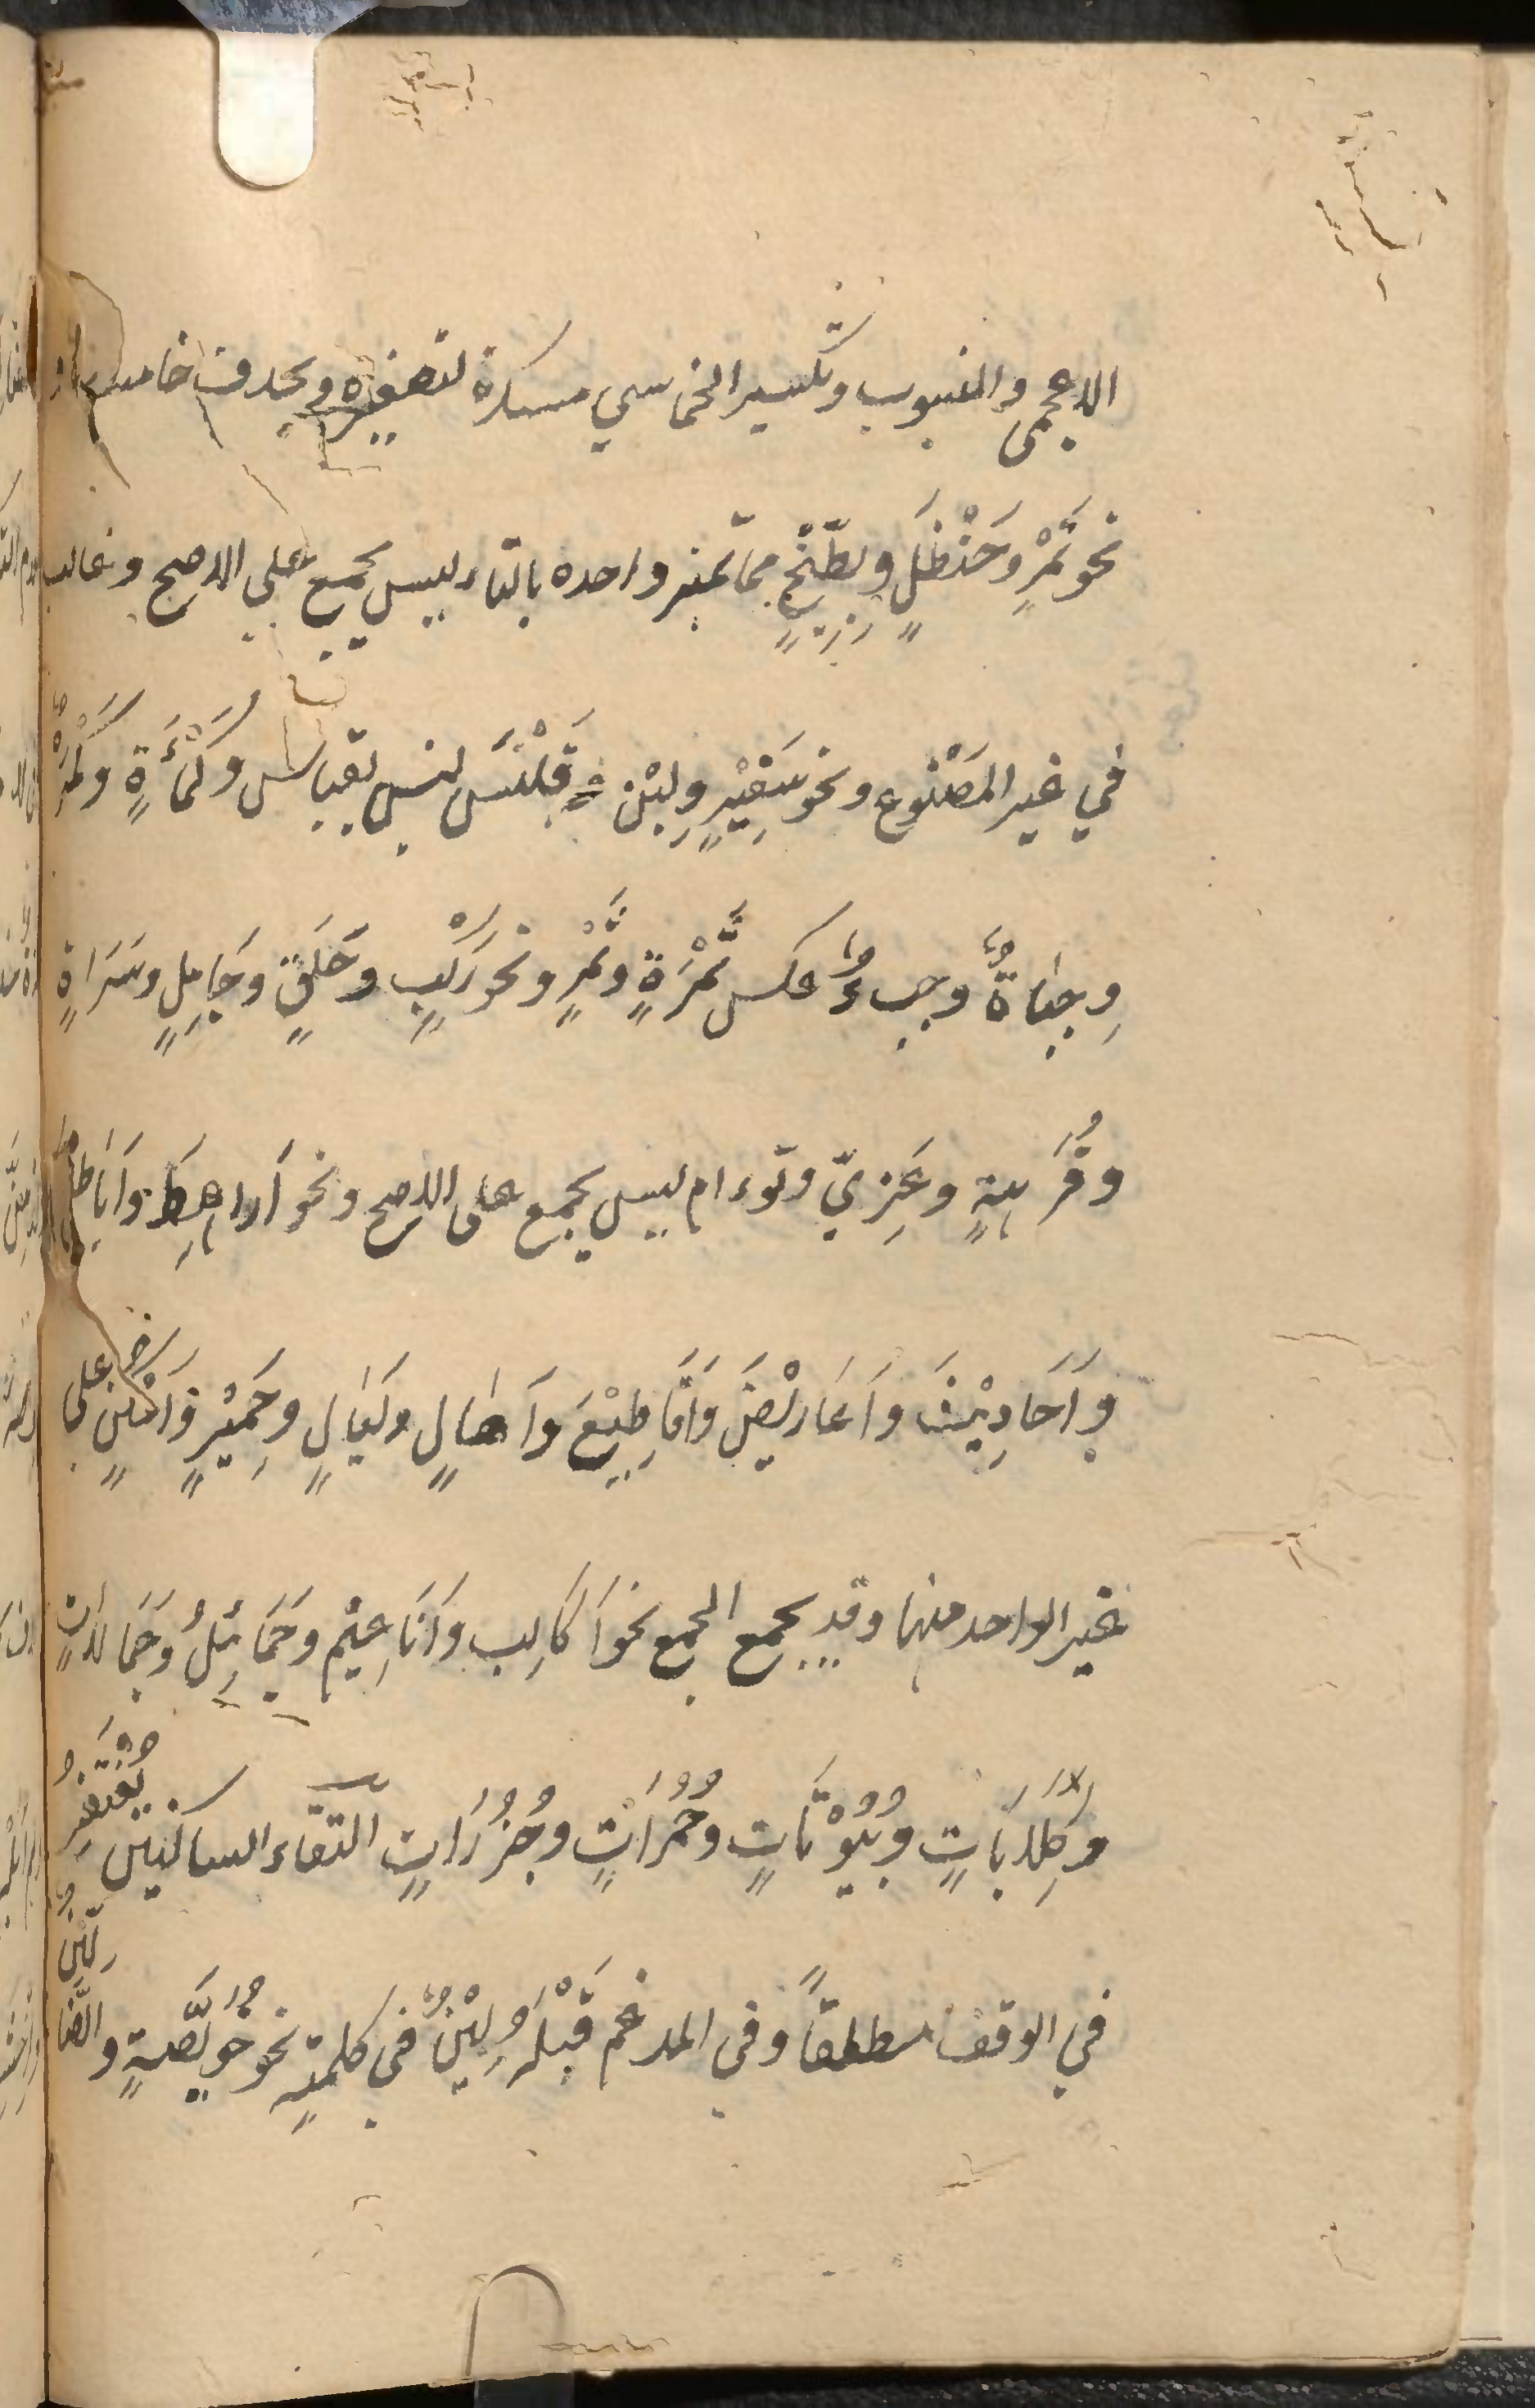 الاعجمي والمنسوب وتكسير الخماسي مستكره لتصغيره ويحذف خامسه
نحو تَمْرٍ وَحَنْظَلٍ وبِطِّيْخٍ مما تميز واحده بالتاء ليس بجمع على الاصح وغالب
في غير المَصْنُوع ونحو سَفِيْنٍ وَلِبْنٍ وقَلَنْسٍ ليس بقياس وَكَمْأَةٍ وَكَمْءٌ
وِجبَاةٌ وجبءٌ عكس تَمْرَةٍ وتَمْرٍ ونحو رَكْبٍ وحَلَقٍ وجَامِلٍ وسَرَاةٍ
وفُرْهَةٍ وغَزِيٍّ وتوءام ليس بجمع على الاصح ونحو أراهِطَ وَابَاطِيل
وَاَحَادِيْثَ واَعَارِيْضَ وَاَقَاطِيْعَ وَاَهَالٍ ولَيَالٍ وحَمِيْرٍ وَاَمْكُنٍ على
غير الواحد منها وقد يجمع الجمع نحو اَكَالِب وَاَنَاعِيْم وجَمَائِلُ وَجَمَالَاتٍ
وَكِلَابَاتٍ وبُيُوْتَاتٍ وحُمُرَاتٍ وجُزُرَاتٍ التقاء الساكنين يُغْتَفَرُ
في الوقف مطلقاً وفي المدغم قَبْلَهُ لِيْنٌ في كلمةٍ نحو خُوَيْصَّةٍ والضَّالِّيْنَ